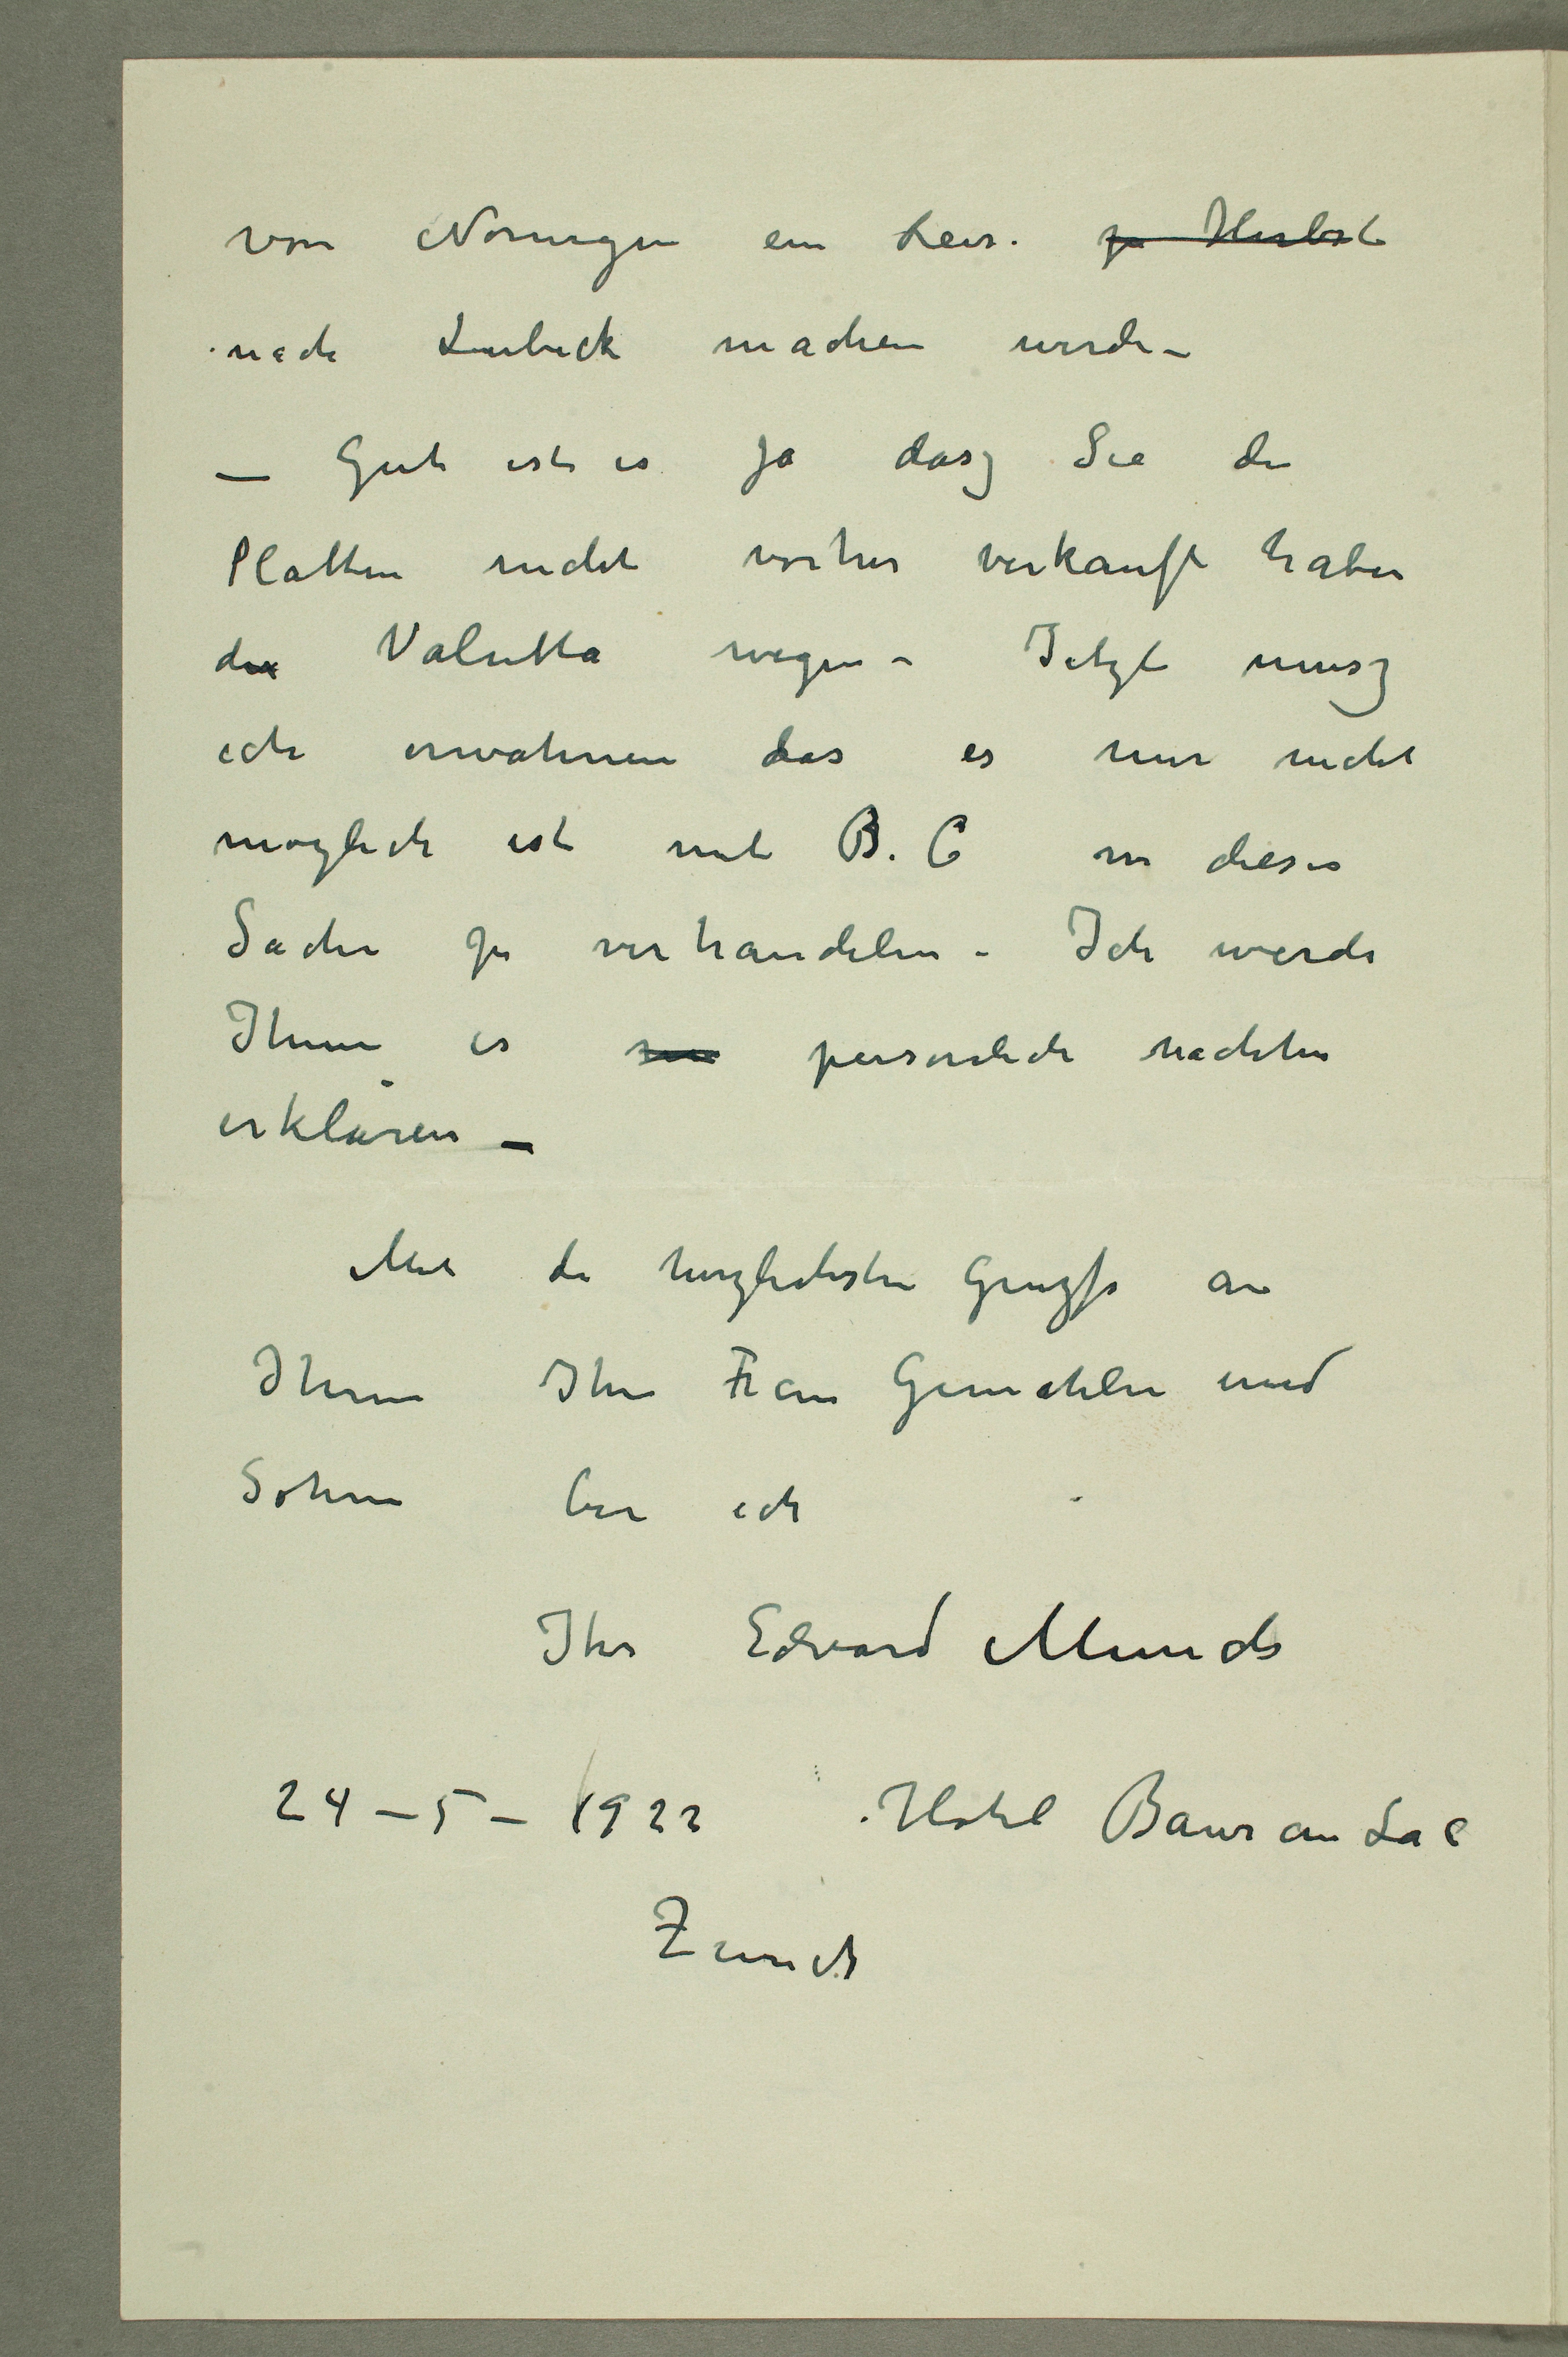 von Norwegen ein Reise zu Herbst
nach Luebeck machen werde –
– Gut ist es ja dasz Sie die
Platten nicht vorher verkauft haben
der Valutta wegen – Jetzt musz
ich erwahnen das es mir nicht
moglich ist mit B. C in dieser
Sache zu verhandelen – Ich werde
Ihnen es personlich nachher
erklären –
Mit die herzlichsten Gruze an
Ihnen Ihre Frau Gemahlin und
Sohne bin ich
Ihr Edvard Munch
24 – 5 – 1922 Hotel Baur au Lac
Zurich